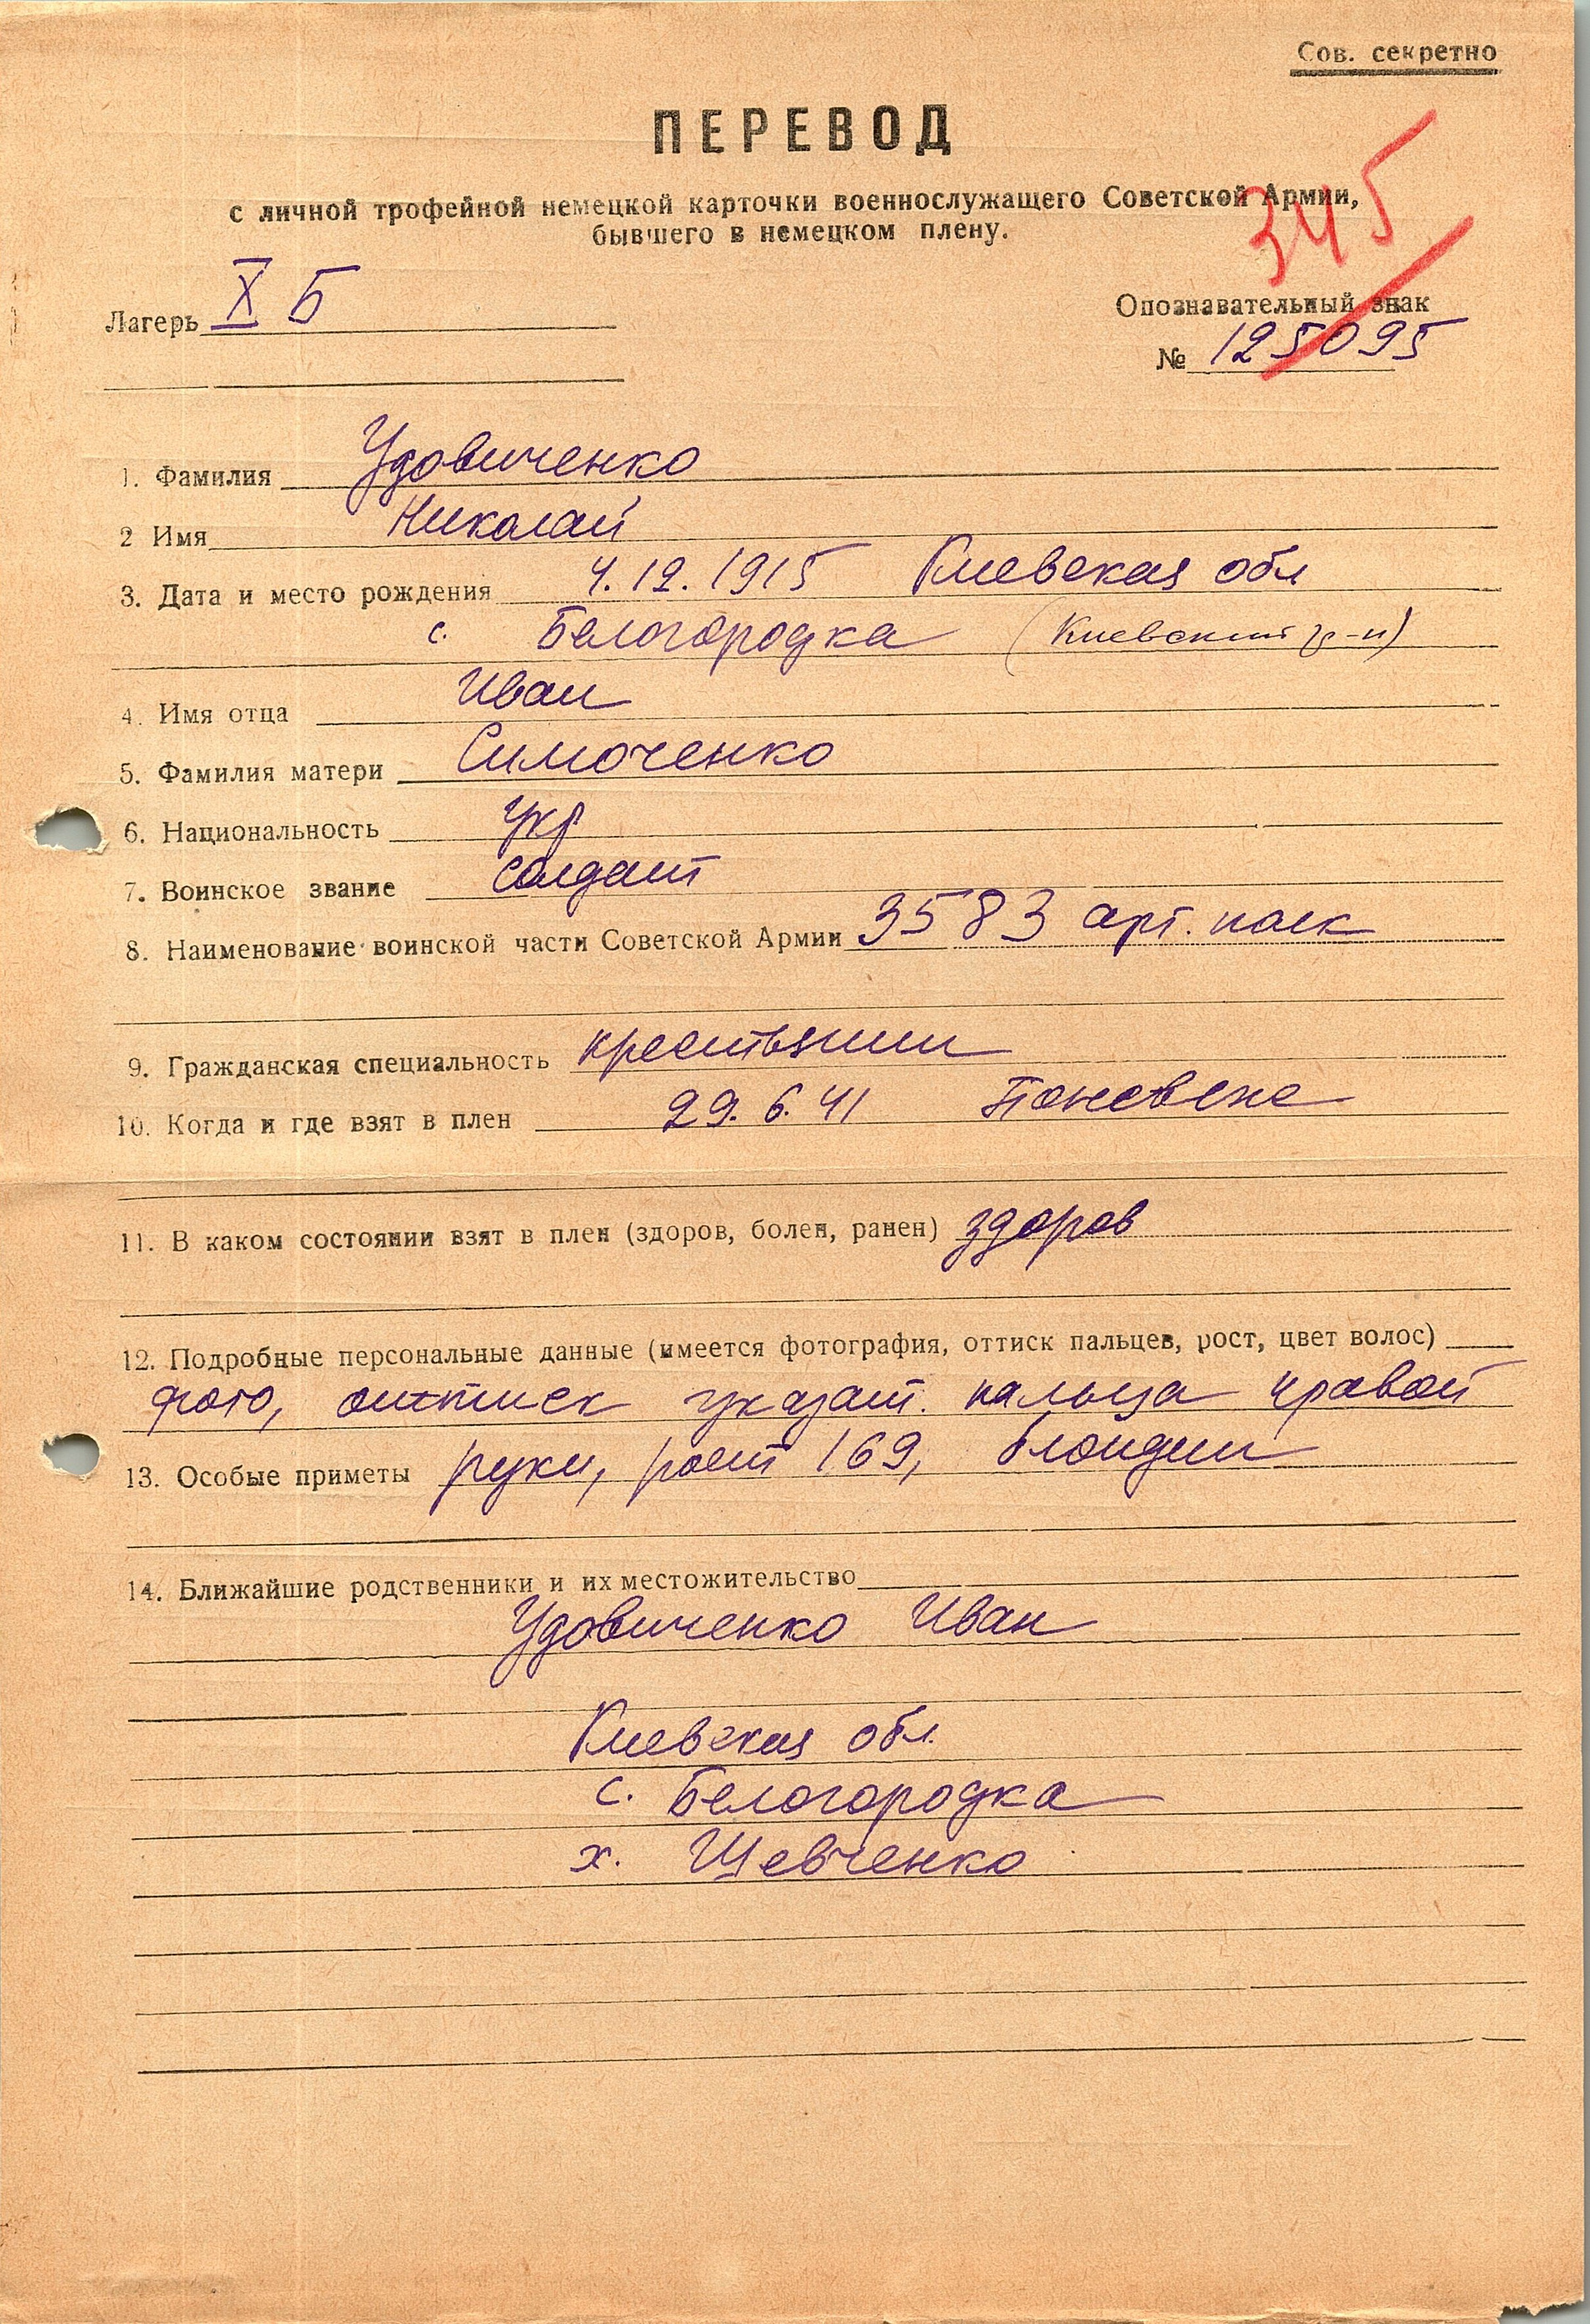 Сов. секретно
ПЕРЕВОД
с личной трофейной немецкой карточки военнослужащего Советской Армии,
бывшего в немецком плену.
345
Лагерь X Б
Опознавательный знак
№ 125095
1. Фамилия Удовиченко
2 Имя Николай
3. Дата и место рождения 4.12.1915 Киевская обл
с. Белогородка (Киевский р-н)
4. Имя отца Иван
5. Фамилия матери Симоченко
6. Национальность Укр
7. Воинское звание солдат
8. Наименование воинской части Советской Армии 3583 арт. полк
9. Гражданская специальность крестьянин
10. Когда и где взят в плен 29.6.41 Поневеже
11. В каком состоянии взят в плен (здоров, болен, ранен) здоров
12. Подробные персональные данные (имеется фотография, оттиск пальцев, рост, цвет волос)
фото, оттиск указат. пальца правой
13. Особые приметы руки, рост 169, блондин
14. Ближайшие родственники и их местожительство
Удовиченко Иван
Киевская обл.
с. Белогородка
х. Шевченко